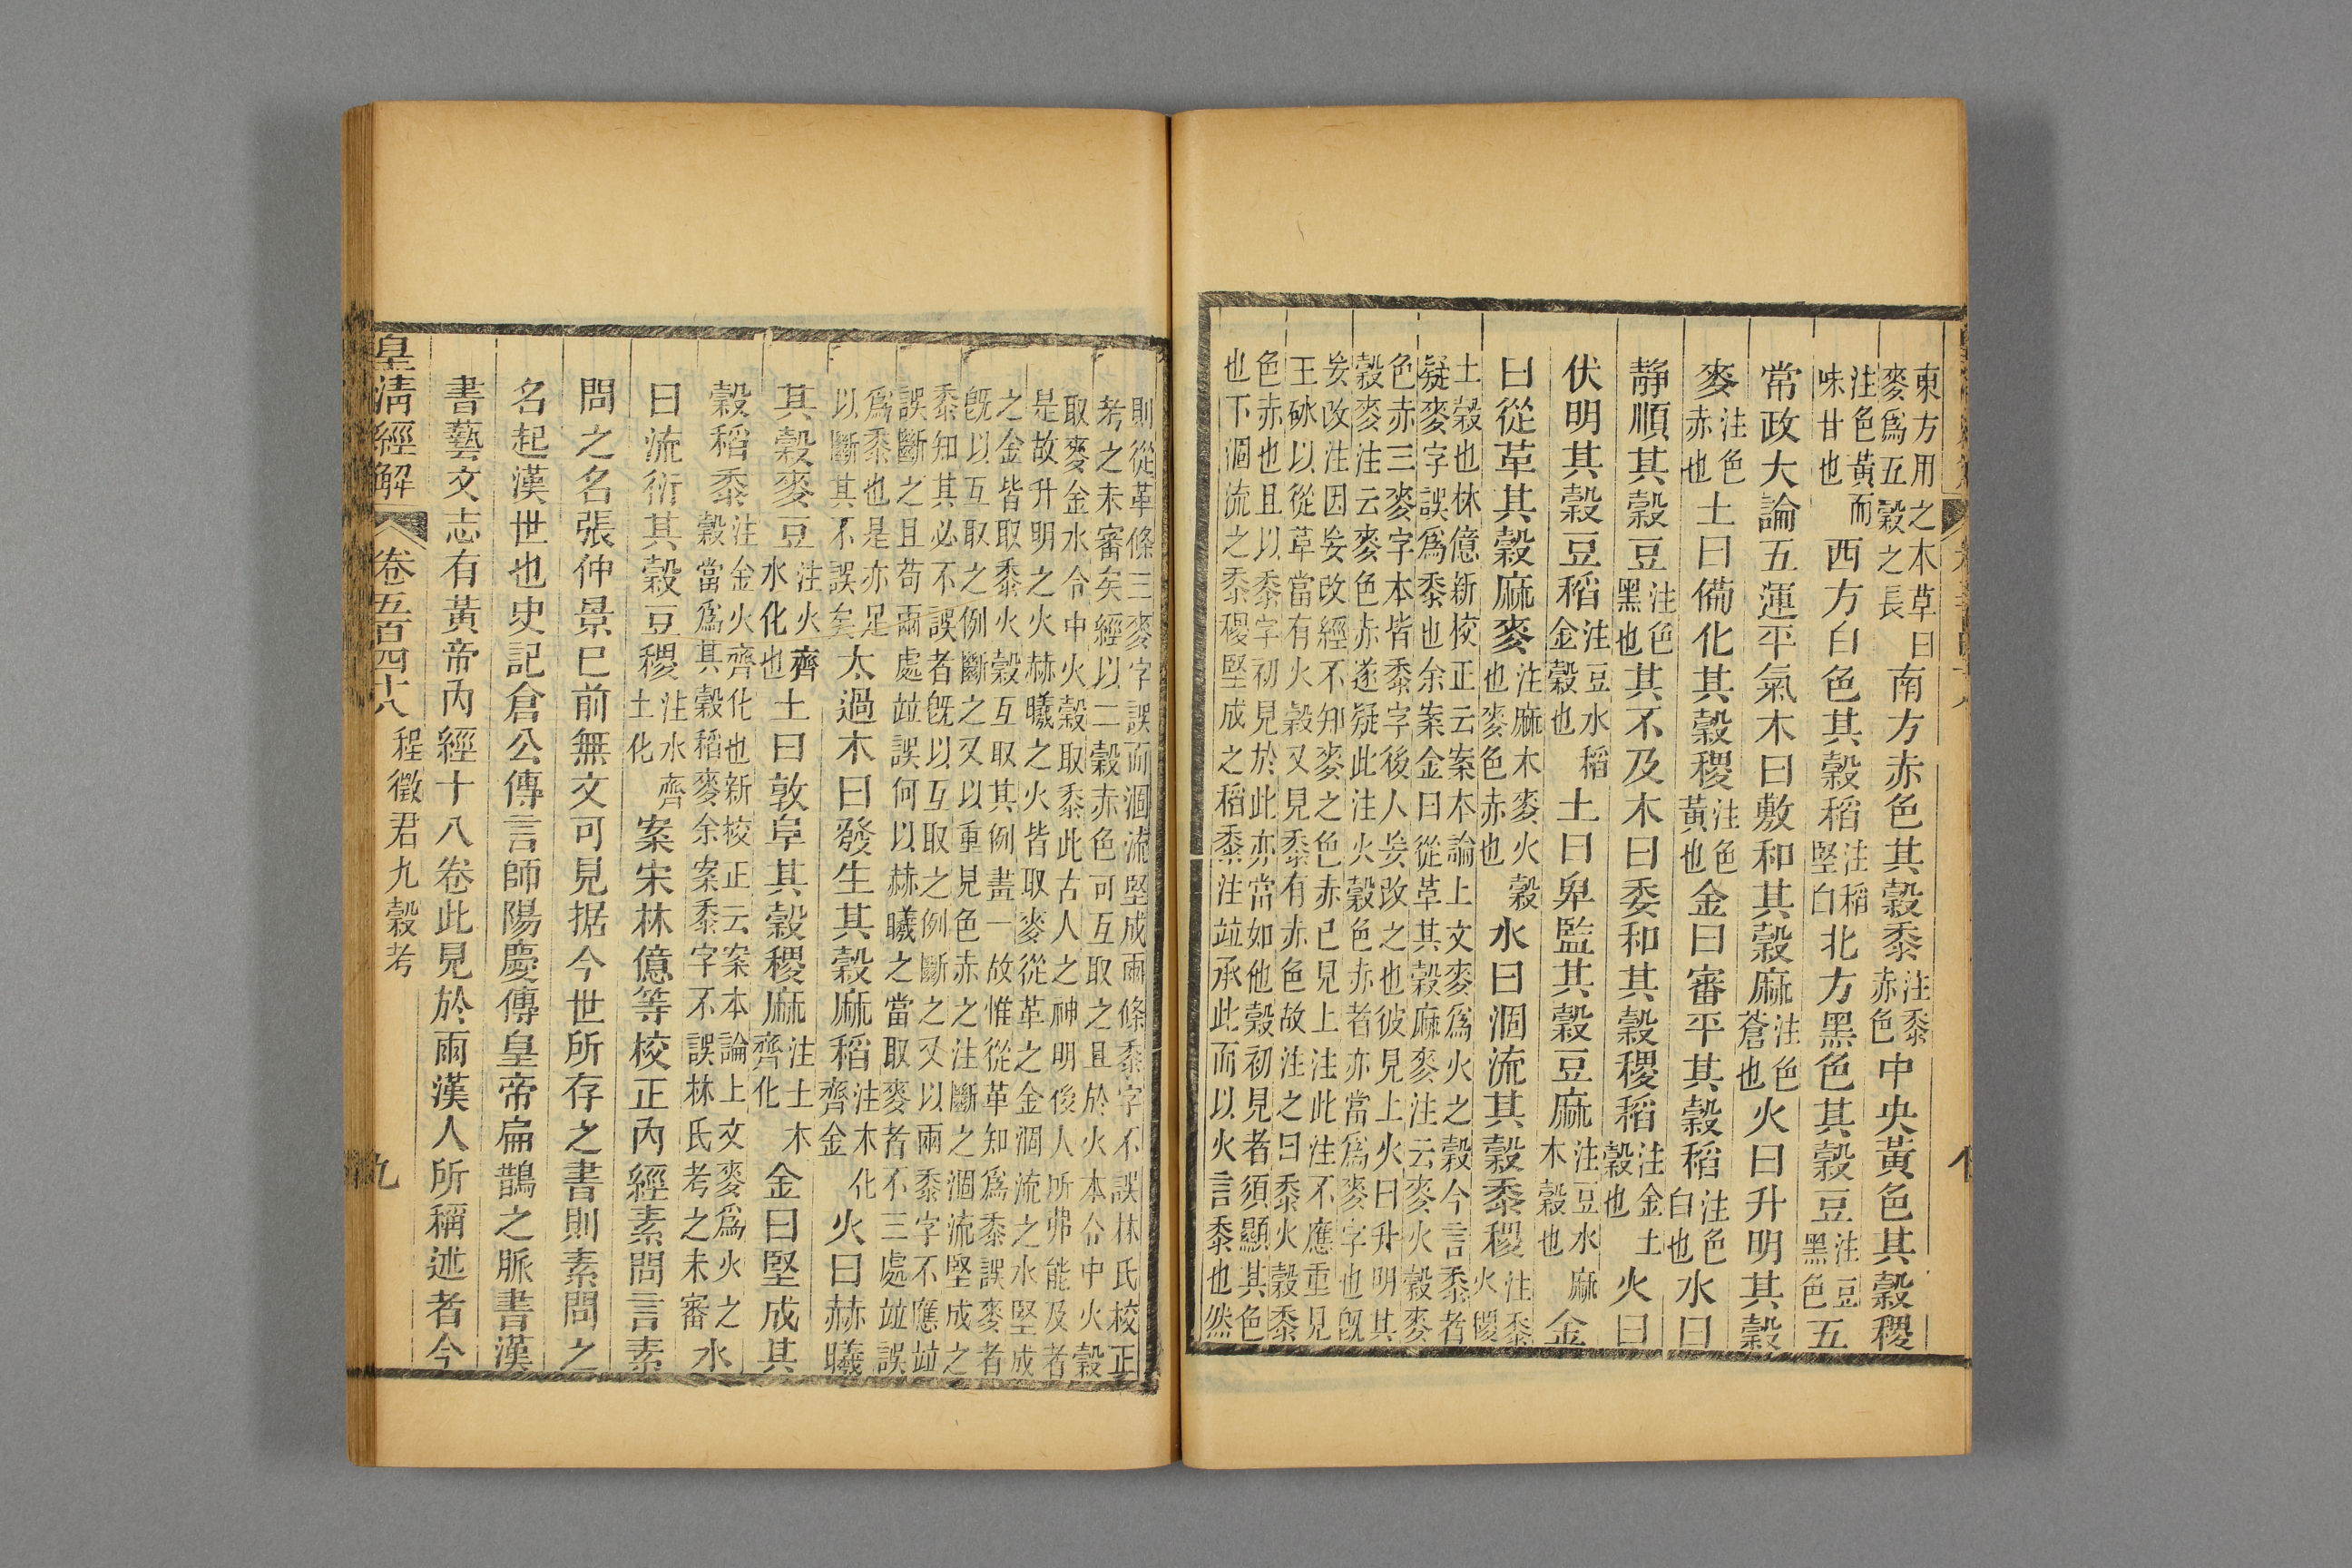 東方用之本草曰
麥爲五穀之長
南方赤色其穀黍
注黍
赤色
中央黃色其穀稷
注色黃而
味甘也
西方白色其穀稻
注稻
堅白
北方黑色其穀豆
注豆
黑色
五
常政大論五運平氣木曰敷和其穀麻
注色
蒼也
火曰升明其穀
麥
注色
赤也
土曰備化其穀稷
注色
黃也
金曰審平其穀稻
注色
白也
水曰
靜順其穀豆
注色
黑也
其不及木曰委和其穀稷稻
注金土
穀也
火曰
伏明其穀豆稻
注豆水稻
金穀也
土曰卑監其穀豆麻
注豆水麻
木穀也
金
曰從革其穀麻麥
注麻木麥火穀
也麥色赤也
水曰涸流其穀黍稷
注黍
火稷
土穀也林億新校正云案本論上文麥爲火之穀今言黍者
疑麥字誤爲黍也余案金曰從革其穀麻麥注云麥火穀麥
色赤三麥字本皆黍字後人妄改之也彼見上火曰升明其
穀麥注云麥色赤遂疑此注火穀色赤者亦當爲麥字也旣
妄改注因妄改經不知麥之色赤已見上注此注不應重見
王砅以從革當有火穀又見黍有赤色故注之曰黍火穀黍
色赤也且以黍字初見於此亦當如他穀初見者須顯其色
也下涸流之黍稷堅成之稻黍注竝承此而以火言黍也然
則從革條三麥字誤而涸流堅成兩條黍字不誤林氏校正
考之未審矣經以二穀赤色可互取之且於火本令中火穀
取麥金水令中火穀取黍此古人之神明後人所弗能及者
是故升明之火赫曦之火皆取麥從革之金涸流之水堅成
之金皆取黍火穀互取其例畫一故惟從革知爲黍誤麥者
旣以互取之例斷之又以重見色赤之注斷之涸流堅成之
黍知其必不誤者旣以互取之例斷之又以兩黍字不應竝
誤斷之且苟兩處竝誤何以赫曦之當取麥者不三處竝誤
爲黍也是亦足
以斷其不誤矣
太過木曰發生其穀麻稻
注木化
齊金
火曰赫曦
其穀麥豆
注火齊
水化也
土曰敦阜其穀稷麻
注土木
齊化
金曰堅成其
穀稻黍
注金火齊化也新校正云案本論上文麥爲火之
穀當爲其穀稻麥余案黍字不誤林氏考之未審
水
曰流衍其穀豆稷
注水齊
土化
案宋林億等校正內經素問言素
問之名張仲景已前無文可見据今世所存之書則素問之
名起漢世也史記倉公傳言師陽慶傳皇帝扁鵲之脈書漢
書藝文志有黃帝內經十八卷此見於兩漢人所稱述者今
皇淸經解
卷五百四十八
程徵君九穀考
九